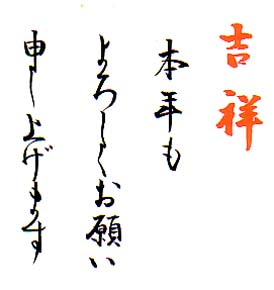 吉祥
本年も
よろしくお願い
申し上げます